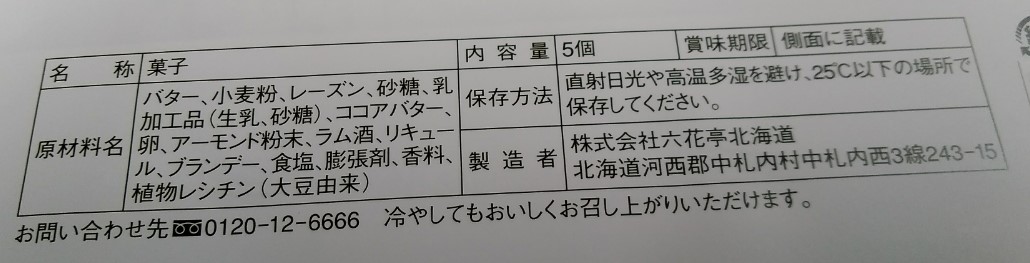 名称 菓子
原材料名 バター、小麦粉、レーズン、砂糖、乳
加工品（生乳、砂糖）、ココアバター、
卵、アーモンド粉末、ラム酒、リキュー
ル、ブランデー、食塩、膨張剤、香料、
植物レシチン（大豆由来）
内容量 5個 賞味期限 側面に記載
保存方法 直射日光や高温多湿を避け、25℃以下の場所で
保存してください。
製造者 株式会社六花亭北海道
北海道河西郡中札内村中札内西3線243-15
お問い合わせ先 0120-12-6666 冷やしてもおいしくお召し上がりいただけます。